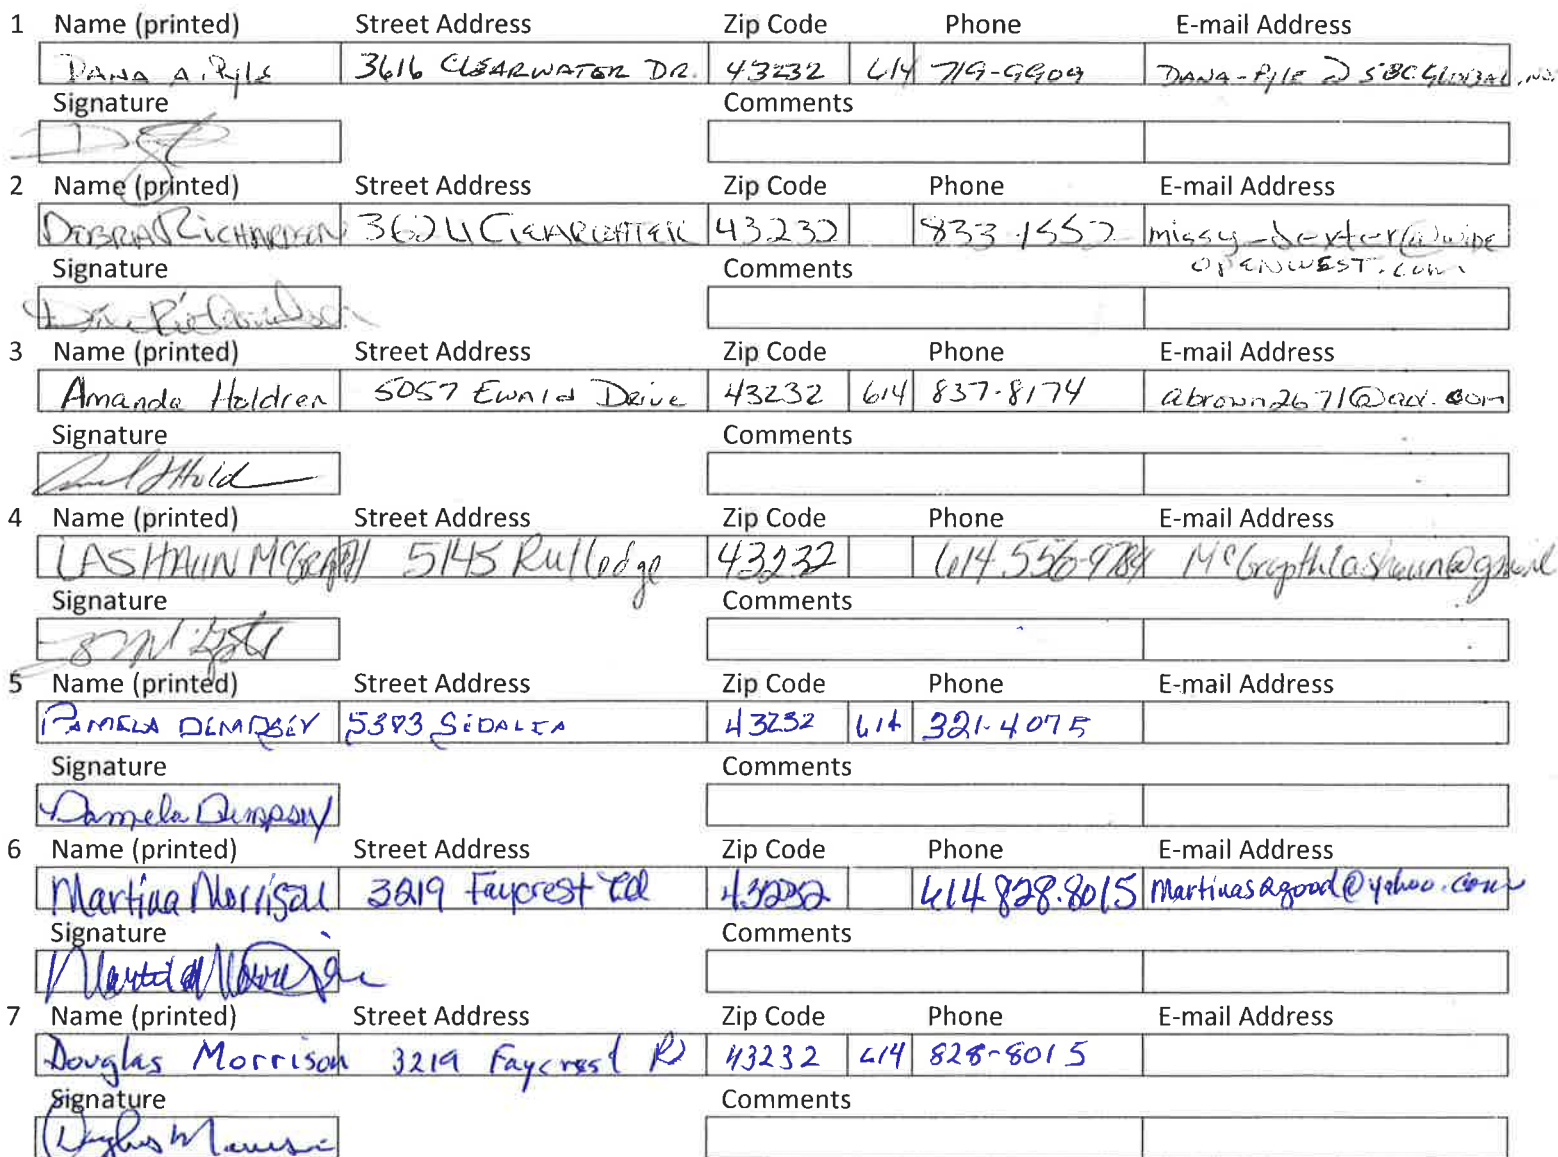 1 Name (printed) Street Address Zip Code Phone E-mail Address
DANA A. Pyle 3616 CLEARWATER DR. 43232 614 719-9909 DANA-Pyle @ SBCGLOBAL.
Signature Comments
2 Name (printed) Street Address Zip Code Phone E-mail Address
DEBRA RICHARDSON 3624 CLEARWATER 43232 833-1552 missy-dexter@wide
OPENWEST.com
Signature Comments
3 Name (printed) Street Address Zip Code Phone E-mail Address
Amanda Holdren 5057 Ewald Drive 43232 614 837-8174 abrown2671@aol.com
Signature Comments
4 Name (printed) Street Address Zip Code Phone E-mail Address
LASHAUN McGRAPTH 5145 Rutledge 43232 614.556-9784 McGrapthlashaun@gmail
Signature Comments
5 Name (printed) Street Address Zip Code Phone E-mail Address
PAMELA DEMPSEY 5383 SEDALIA 43232 614 321-4075
Signature Comments
Pamela Dempsey
6 Name (printed) Street Address Zip Code Phone E-mail Address
Martina Morrison 3219 Faycrest Rd 43232 614.828.8015 Martinas2good@yahoo.com
Signature Comments
7 Name (printed) Street Address Zip Code Phone E-mail Address
Douglas Morrison 3219 Faycrest R 43232 614 828-8015
Signature Comments